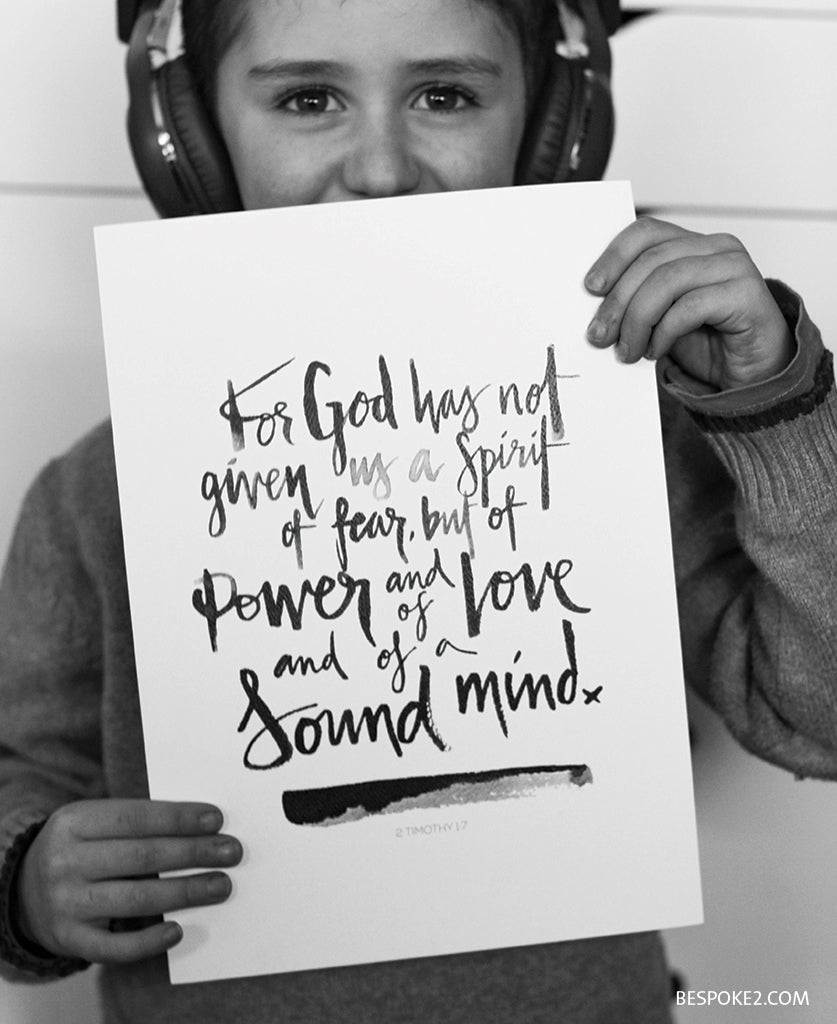 For God has not
given us a Spirit
of fear, but of
Power and of Love
and of a
Sound mind.x
2 TIMOTHY 1:7
BESPOKE2.COM